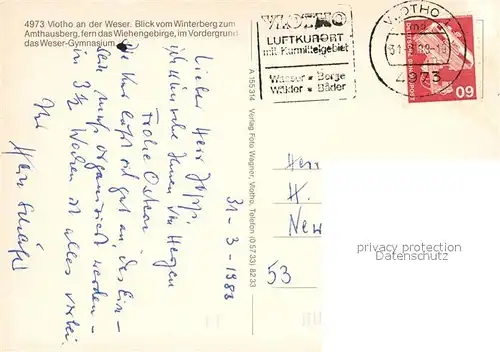 4973 Vlotho an der Weser. Blick vom Winterberg zum
Amthausberg, fern das Wiehengebirge, im Vordergrund
das Weser-Gymnasium
Lieber Herr
ich wünsche Ihnen von Herzen
Frohe Ostern
Die Kur läßt sich gut an, das Ein-
muß organisiert werden -
in 3½ Wochen ist alles vorbei.
Ihr
31-3-1988
A 155 314 Verlag Foto Wagner, Vlotho, Telefon (0 57 33) 82 33
VLOTHO
LUFTKURORT
mit Kurmittelgebiet
Wasser * Berge
Wälder * Bäder
VLOTHO
4973
DEUTSCHE BUNDESPOST
60
Herr
H.
New
53
privacy protection
Datenschutz